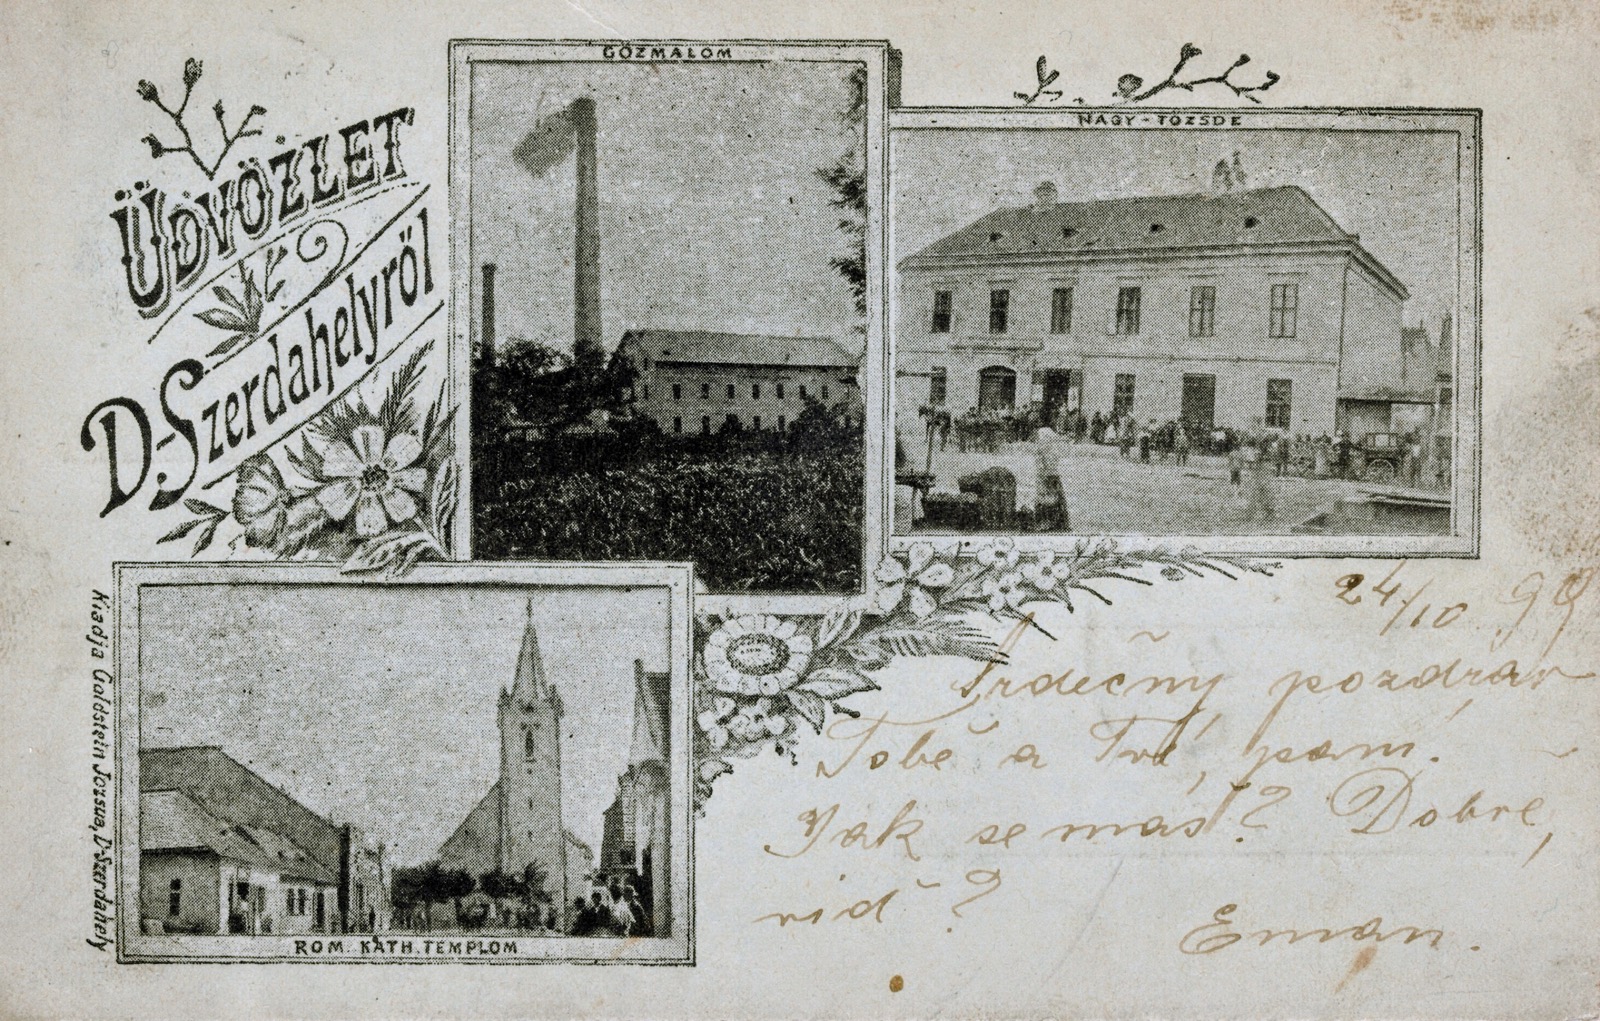 ÜDVÖZLET
D.-Szerdahelyről
GŐZMALOM
NAGY-TŐZSDE
ROM. KATH. TEMPLOM
Kiadja Goldstein Jozsua, D-Szerdahely
24/10 99
Srdečný pozdrav
Tobě a Tvé paní.
Jak se máš? Dobře,
viď?
Eman.